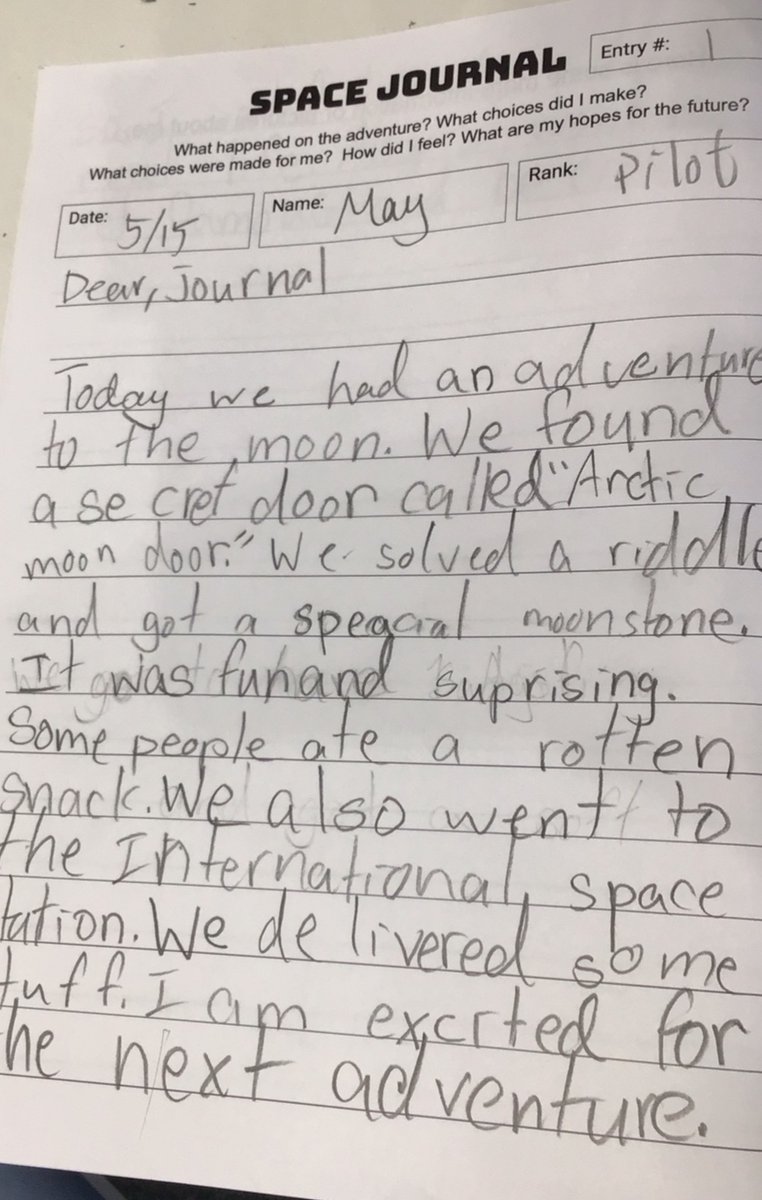 SPACE JOURNAL
Entry #: 1
What happened on the adventure? What choices did I make?
What choices were made for me? How did I feel? What are my hopes for the future?
Date: 5/15
Name: May
Rank: Pilot
Dear, Journal
Today we had an adventure
to the moon. We found
a secret door called "Arctic
moon door." We solved a riddle
and got a spegacial moonstone.
It was fun and suprising.
Some people ate a rotten
snack. We also went to
the International space
tation. We delivered some
tuff. I am excited for
he next adventure.